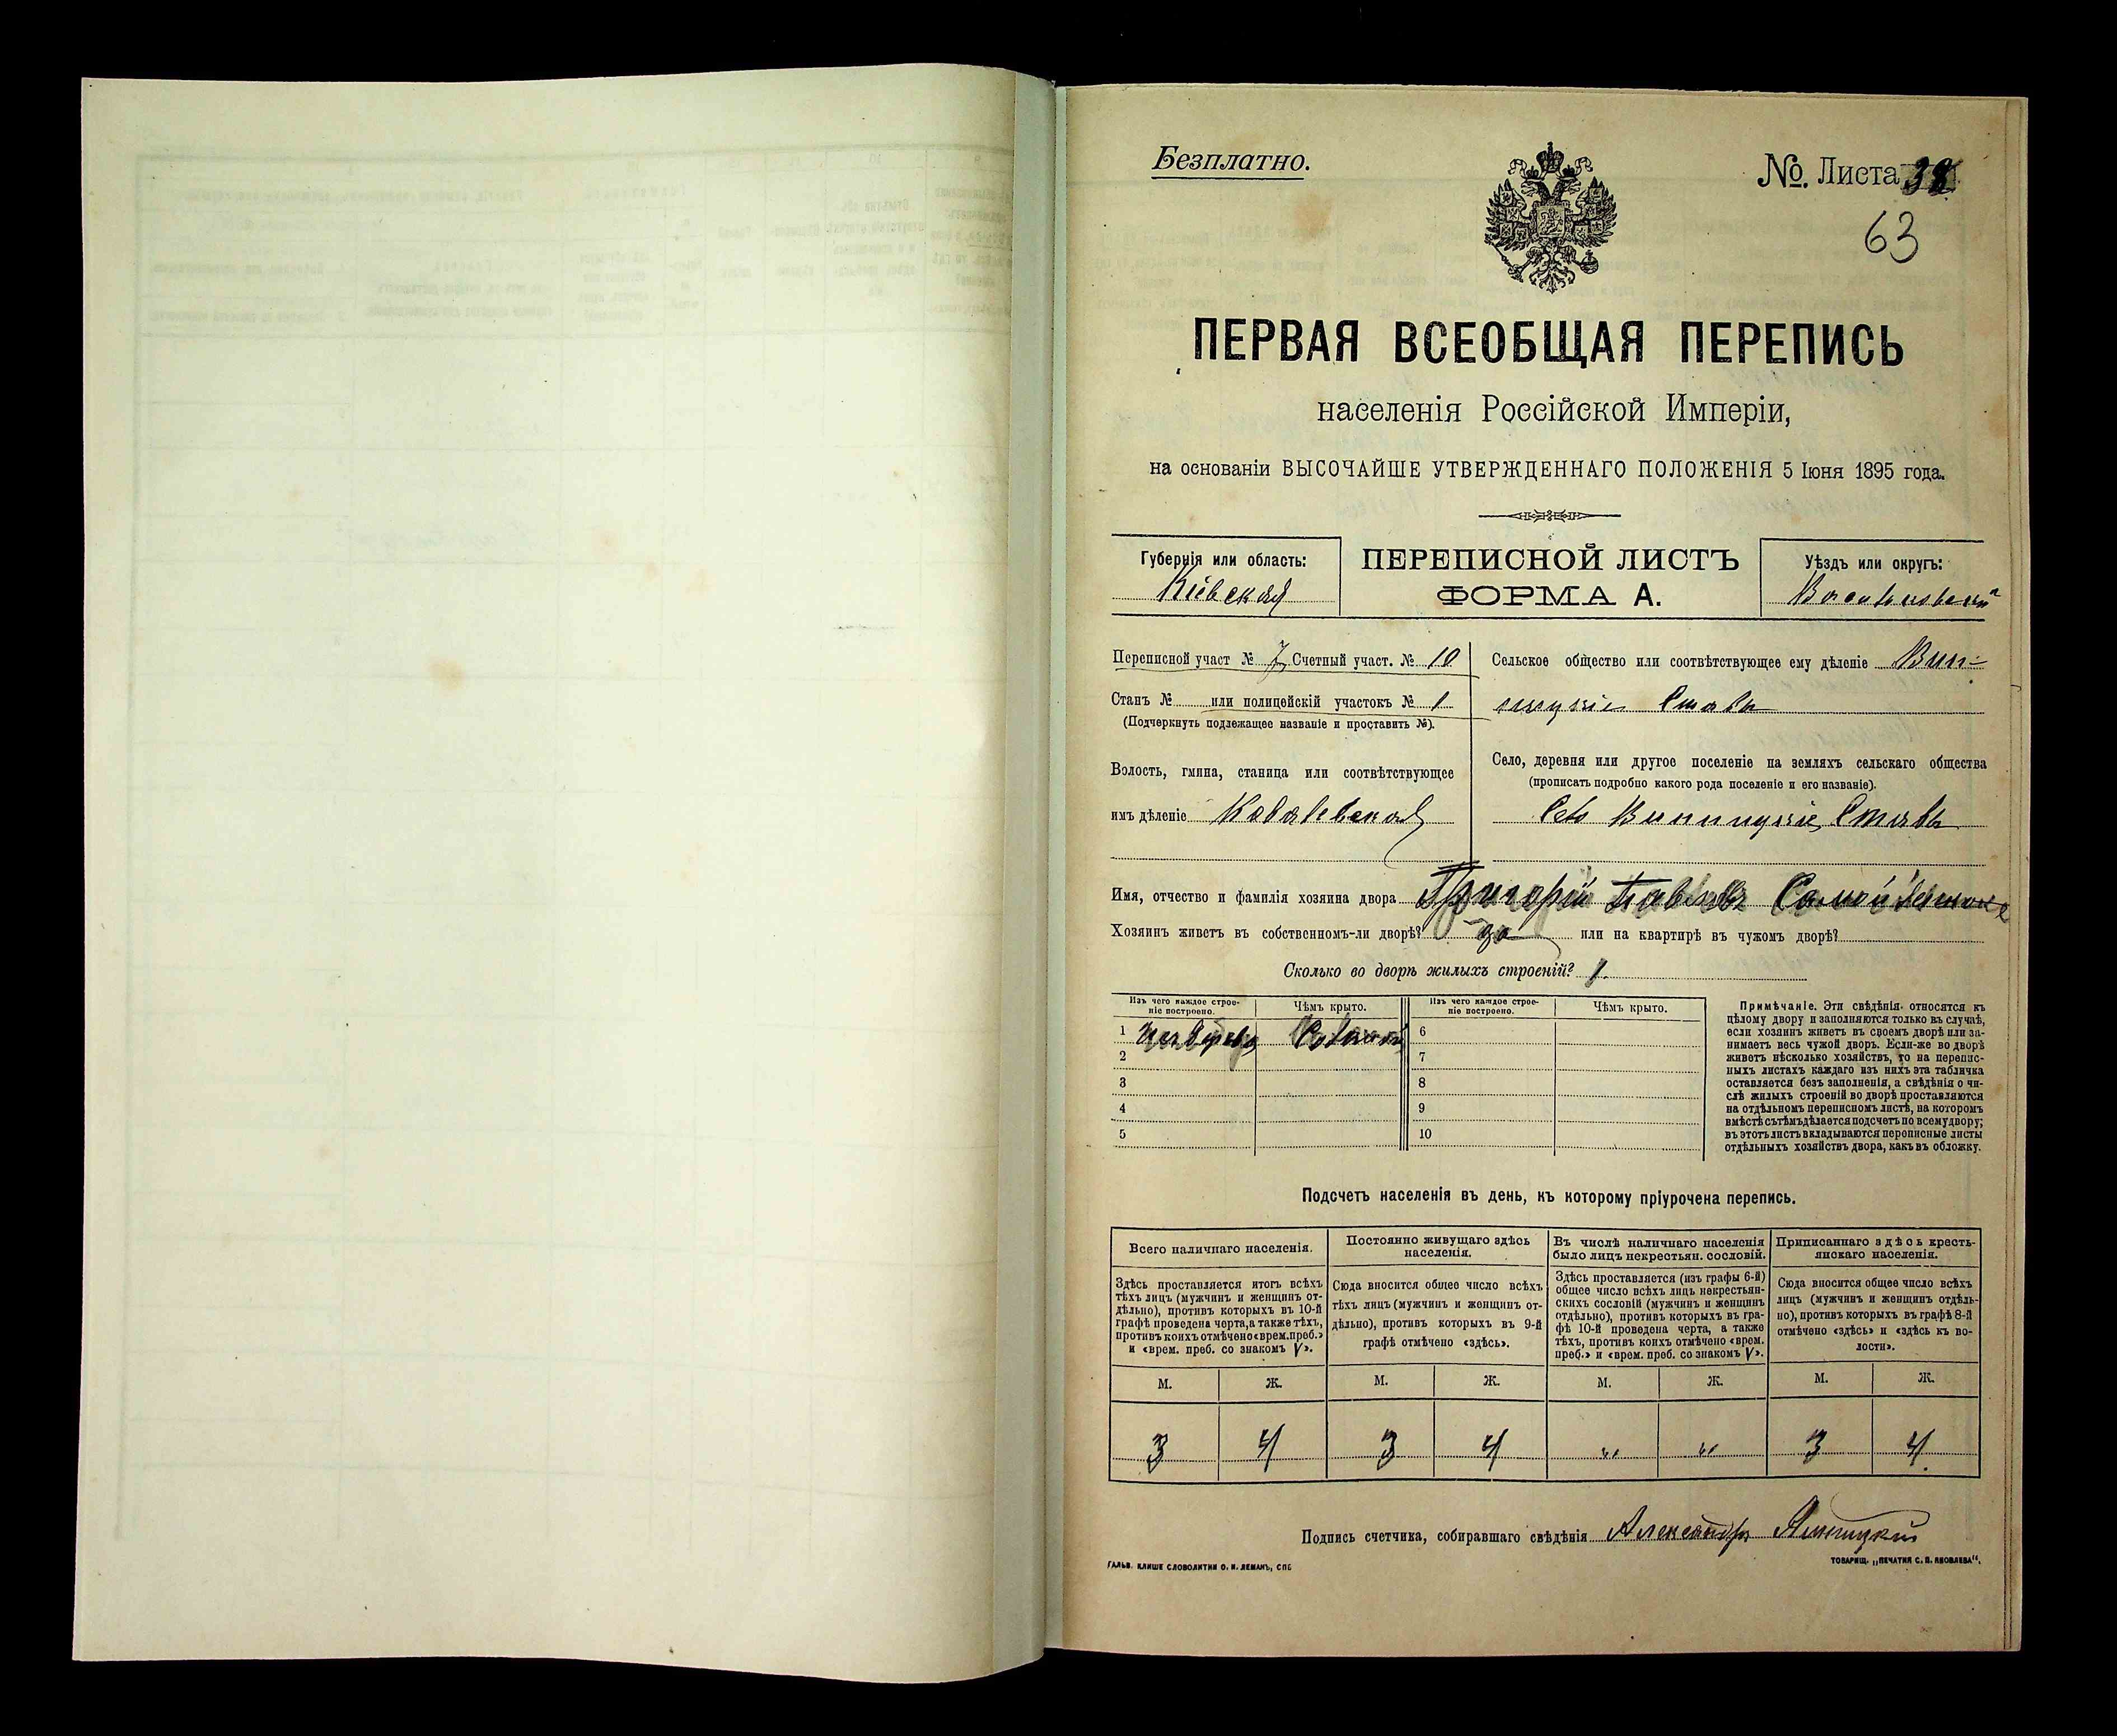 Безплатно.
№. Листа 38
63
ПЕРВАЯ ВСЕОБЩАЯ ПЕРЕПИСЬ
населенія Россійской Имперіи,
на основаніи ВЫСОЧАЙШЕ УТВЕРЖДЕННАГО ПОЛОЖЕНІЯ 5 Іюня 1895 года.
Губернія или область:
Кіевская
ПЕРЕПИСНОЙ ЛИСТЪ
ФОРМА А.
Уѣздъ или округъ:
Васильковскій
Переписной участ № 7 Счетный участ. № 10
Станъ № или полицейскій участокъ № 1
(Подчеркнуть подлежащее названіе и проставить №).
Волость, гмина, станица или соотвѣтствующее
имъ дѣленіе Ковалевская
Сельское общество или соотвѣтствующее ему дѣленіе Вин-
ницкіе Ставы
Село, деревня или другое поселеніе на земляхъ сельскаго общества
(прописать подробно какого рода поселеніе и его названіе).
Село Винницкіе Ставы
Имя, отчество и фамилія хозяина двора Григорій Павловъ
Хозяинъ живетъ въ собственномъ-ли дворѣ? да или на квартирѣ въ чужомъ дворѣ?
Сколько во дворѣ жилыхъ строеній? 1.
Изъ чего каждое строе-
ніе построено.
Чѣмъ крыто.
Изъ чего каждое строе-
ніе построено.
Чѣмъ крыто.
1 Изъ дерева Соломой
6
2
7
3
8
4
9
5
10
Примѣчаніе. Эти свѣдѣнія относятся къ
цѣлому двору и заполняются только въ случаѣ,
если хозяинъ живетъ въ своемъ дворѣ или за-
нимаетъ весь чужой дворъ. Если-же во дворѣ
живетъ нѣсколько хозяйствъ, то на перепис-
ныхъ листахъ каждаго изъ нихъ эта табличка
оставляется безъ заполненія, а свѣдѣнія о чи-
слѣ жилыхъ строеній во дворѣ проставляются
на отдѣльномъ переписномъ листѣ, на которомъ
вмѣстѣ съ тѣмъ дѣлается подсчетъ по всему двору;
въ этотъ листъ вкладываются переписные листы
отдѣльныхъ хозяйствъ двора, какъ въ обложку.
Подсчетъ населенія въ день, къ которому пріурочена перепись.
Всего наличнаго населенія.
Здѣсь проставляется итогъ всѣхъ
тѣхъ лицъ (мужчинъ и женщинъ от-
дѣльно), противъ которыхъ въ 10-й
графѣ проведена черта, а также тѣхъ,
противъ коихъ отмѣчено «врем. преб.»
и «врем. преб. со знакомъ V».
Постоянно живущаго здѣсь
населенія.
Сюда вносится общее число всѣхъ
тѣхъ лицъ (мужчинъ и женщинъ от-
дѣльно), противъ которыхъ въ 9-й
графѣ отмѣчено «здѣсь».
Въ числѣ наличнаго населенія
было лицъ некрестьян. сословій.
Здѣсь проставляется (изъ графы 6-й)
общее число всѣхъ лицъ некрестьян-
скихъ сословій (мужчинъ и женщинъ
отдѣльно), противъ которыхъ въ гра-
фѣ 10-й проведена черта, а также
тѣхъ, противъ коихъ отмѣчено «врем.
преб.» и «врем. преб. со знакомъ V».
Приписаннаго здѣсь кресть-
янскаго населенія.
Сюда вносится общее число всѣхъ
лицъ (мужчинъ и женщинъ отдѣль-
но), противъ которыхъ въ графѣ 8-й
отмѣчено «здѣсь» и «здѣсь къ во-
лости».
М. Ж. М. Ж. М. Ж. М. Ж.
3 4 3 4 " " 3 4
Подпись счетчика, собиравшаго свѣдѣнія Александръ
ГАЛЬВ. КЛИШЕ СЛОВОЛИТНИ О. И. ЛЕМАНЪ, СПБ
ТОВАРИЩ. „ПЕЧАТНЯ С. П. ЯКОВЛЕВА".